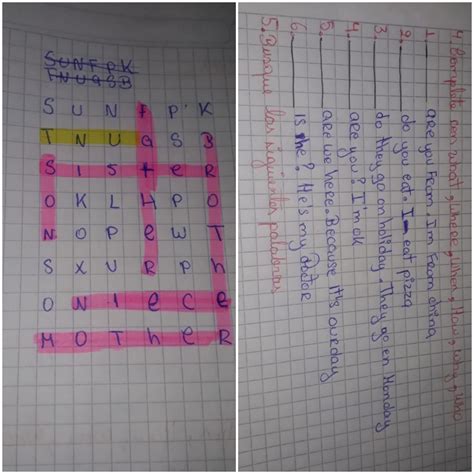 SUNFPK
TNUASB
S U N F P K
T N U A S B
S I S T e R
O K L H P O
N O P e W T
S X U R P h
O N I e C e
M O T h e R
4. Complete con what, where, when, How, why, who
1. ______ are you From. I'm From china
2. ______ do you eat. I eat pizza
3 ______ do they go on holiday. They go on Monday
4. ______ are you? I'm ok
5. ______ are we here. Because it's our day
6. ______ is she? He's my doctor
5. Busque las siguientes palabras